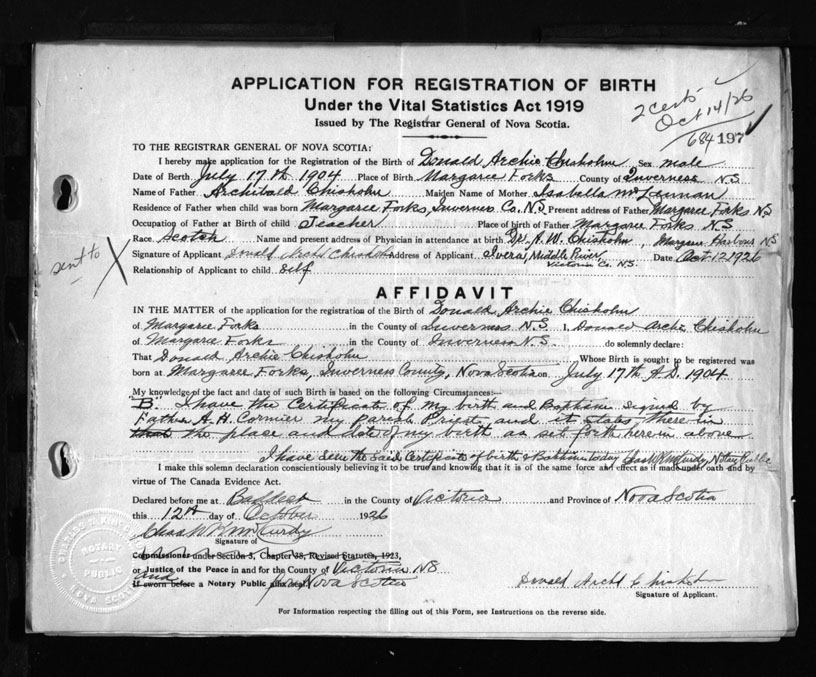 APPLICATION FOR REGISTRATION OF BIRTH
Under the Vital Statistics Act 1919
Issued by The Registrar General of Nova Scotia.
2 certs
Oct 14/26
684 197
TO THE REGISTRAR GENERAL OF NOVA SCOTIA:
I hereby make application for the Registration of the Birth of Donald Archie Chisholm Sex male
Date of Birth July 17th 1904 Place of Birth Margaree Forks County of Inverness N.S
Name of Father Archibald Chisholm Maiden Name of Mother Isabella McLennan
Residence of Father when child was born Margaree Forks, Inverness Co. N.S. Present address of Father Margaree Forks N S
Occupation of Father at Birth of child Teacher Place of birth of Father Margaree Forks N.S
Race Scotch Name and present address of Physician in attendance at birth Dr. A. W. Chisholm, Margaree Harbour NS
sent to
Signature of Applicant Donald Archd Chisholm Address of Applicant Middle River, Victoria Co. N.S. Date Oct. 12 1926
Relationship of Applicant to child self
AFFIDAVIT
IN THE MATTER of the application for the registration of the Birth of Donald Archie Chisholm
of Margaree Forks in the County of Inverness N.S I, Donald Archie Chisholm
of Margaree Forks in the County of Inverness N.S. do solemnly declare:
That Donald Archie Chisholm Whose Birth is sought to be registered was
born at Margaree Forks, Inverness County, Nova Scotia on July 17th A.D. 1904
My knowledge of the fact and date of such Birth is based on the following Circumstances:—
B. I have the Certificate of my birth and Baptism signed by
Father A. H. Cormier my parish Priest, and it states, therein
that the place and date of my birth as set forth herein above
I have seen the said Certificate of birth & Baptism today Chas W K McCurdy Notary Public
I make this solemn declaration conscientiously believing it to be true and knowing that it is of the same force and effect as if made under oath and by
virtue of The Canada Evidence Act.
Declared before me at Baddeck in the County of Victoria and Province of Nova Scotia
this 12th day of October 1926
Chas W K McCurdy
Signature of
Commissioner under Section 3, Chapter 38, Revised Statutes, 1923,
or Justice of the Peace in and for the County of Victoria NS
and
If sworn before a Notary Public affix seal for Nova Scotia
Donald Archd Chisholm
Signature of Applicant.
NOTARY
PUBLIC
NOVA SCOTIA
For Information respecting the filling out of this Form, see Instructions on the reverse side.